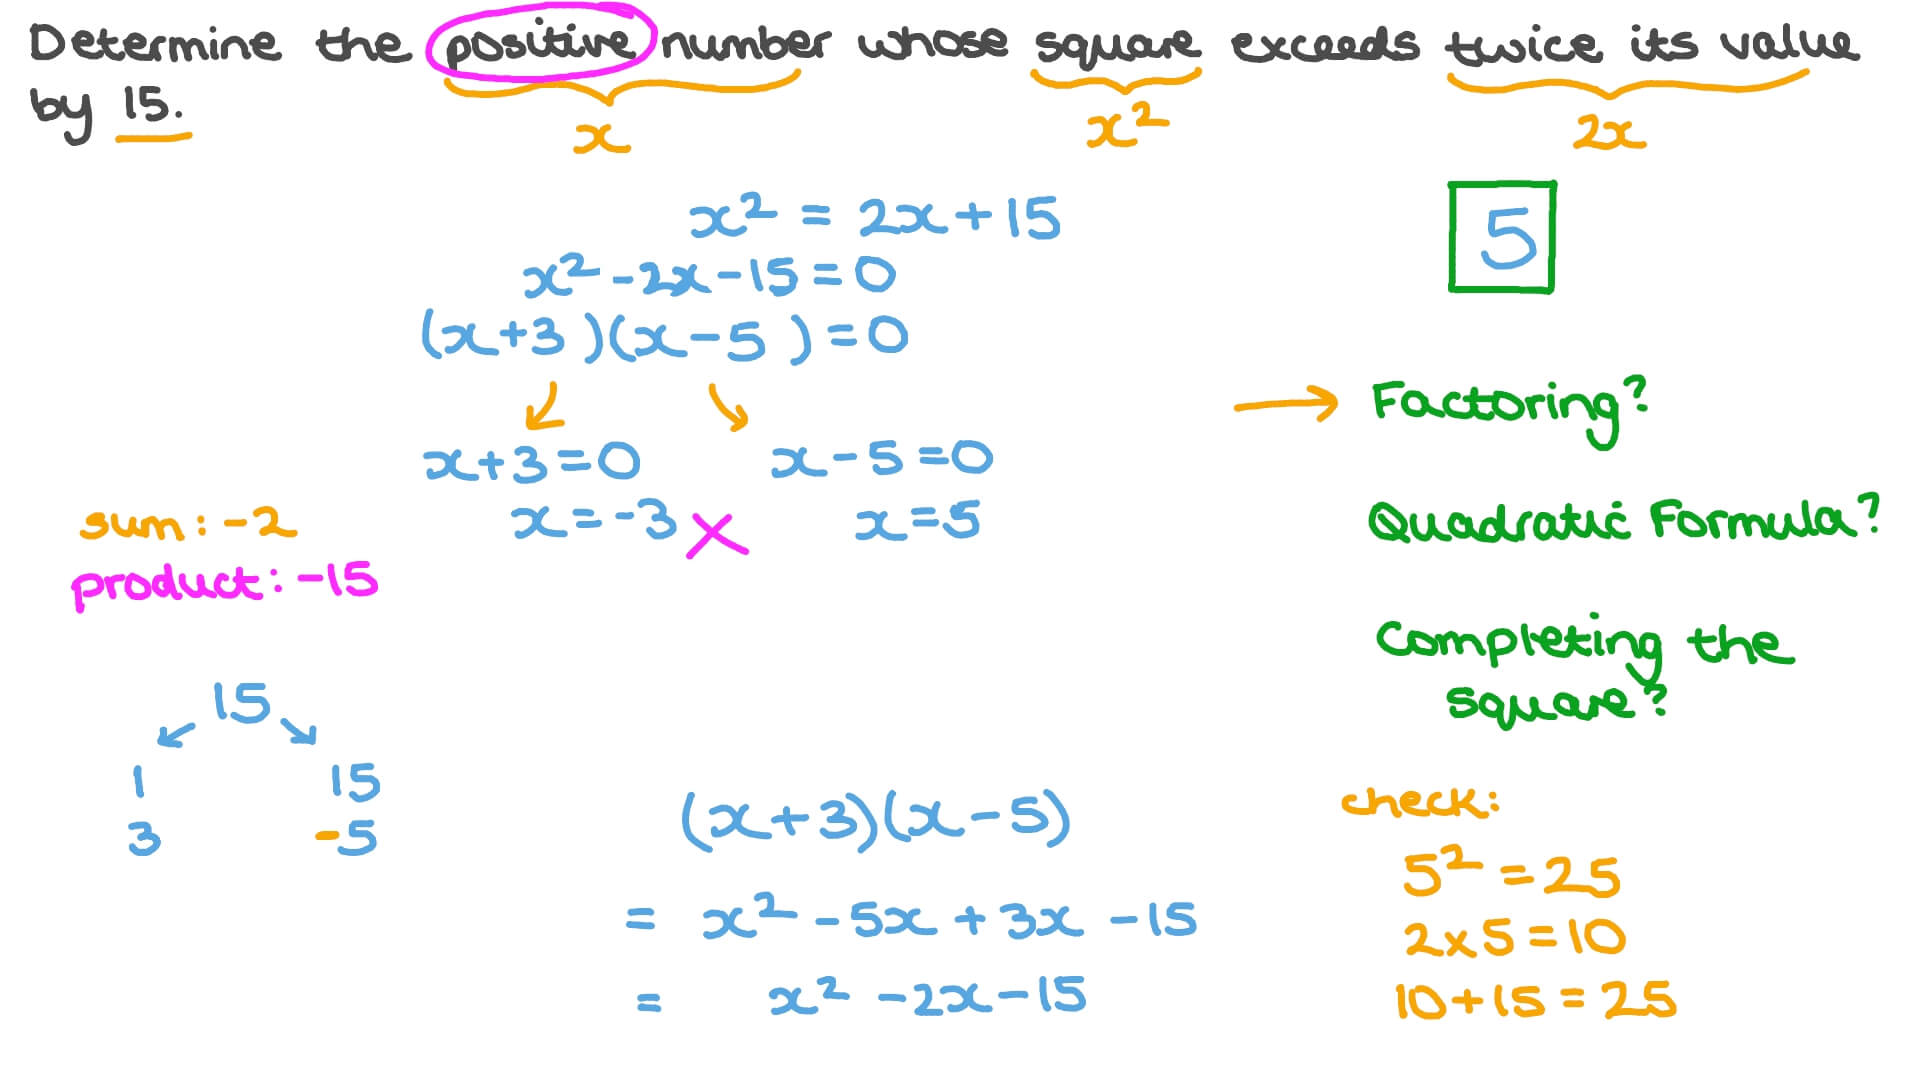 Determine the positive number whose square exceeds twice its value
by 15.
x x² 2x
x² = 2x + 15
5
x² - 2x - 15 = 0
(x+3)(x-5) = 0
→ Factoring?
x+3=0 x-5=0
x=-3 x=5
Quadratic Formula?
sum: -2
product: -15
Completing the
square?
15
1 15
3 -5
(x+3)(x-5)
= x² - 5x + 3x - 15
= x² - 2x - 15
check:
5² = 25
2x5=10
10+15=25